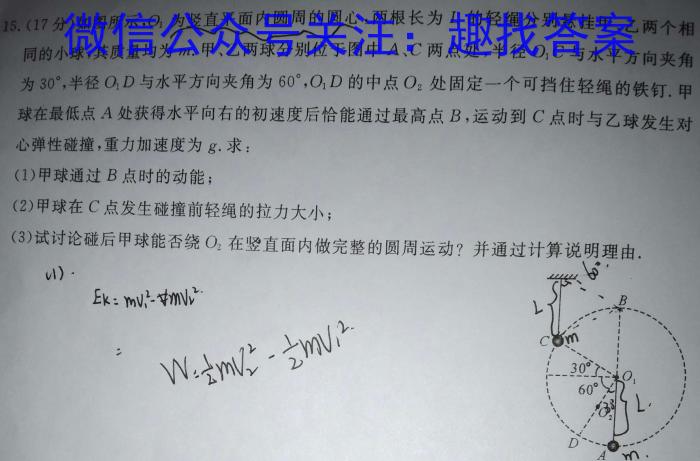 15.(17分
为竖直平面内圆周的圆心,两根长为L的轻绳分别
乙两个相
微信公众号关注：趣找答案
同的小球,其质量均为m,甲、乙两球分别位于图中A、C两点处,半径O₁C与水平方向夹角
为30°,半径O₁D与水平方向夹角为60°,O₁D的中点O₂处固定一个可挡住轻绳的铁钉.甲
球在最低点A处获得水平向右的初速度后恰能通过最高点B,运动到C点时与乙球发生对
心弹性碰撞,重力加速度为g.求:
(1)甲球通过B点时的动能;
(2)甲球在C点发生碰撞前轻绳的拉力大小;
(3)试讨论碰后甲球能否绕O₂在竖直面内做完整的圆周运动?并通过计算说明理由.
(1).
=
W=½mV₂²-½mV₁²
60°
L
B
C
m
30°
O₁
60°
O₂
L
D
A
m